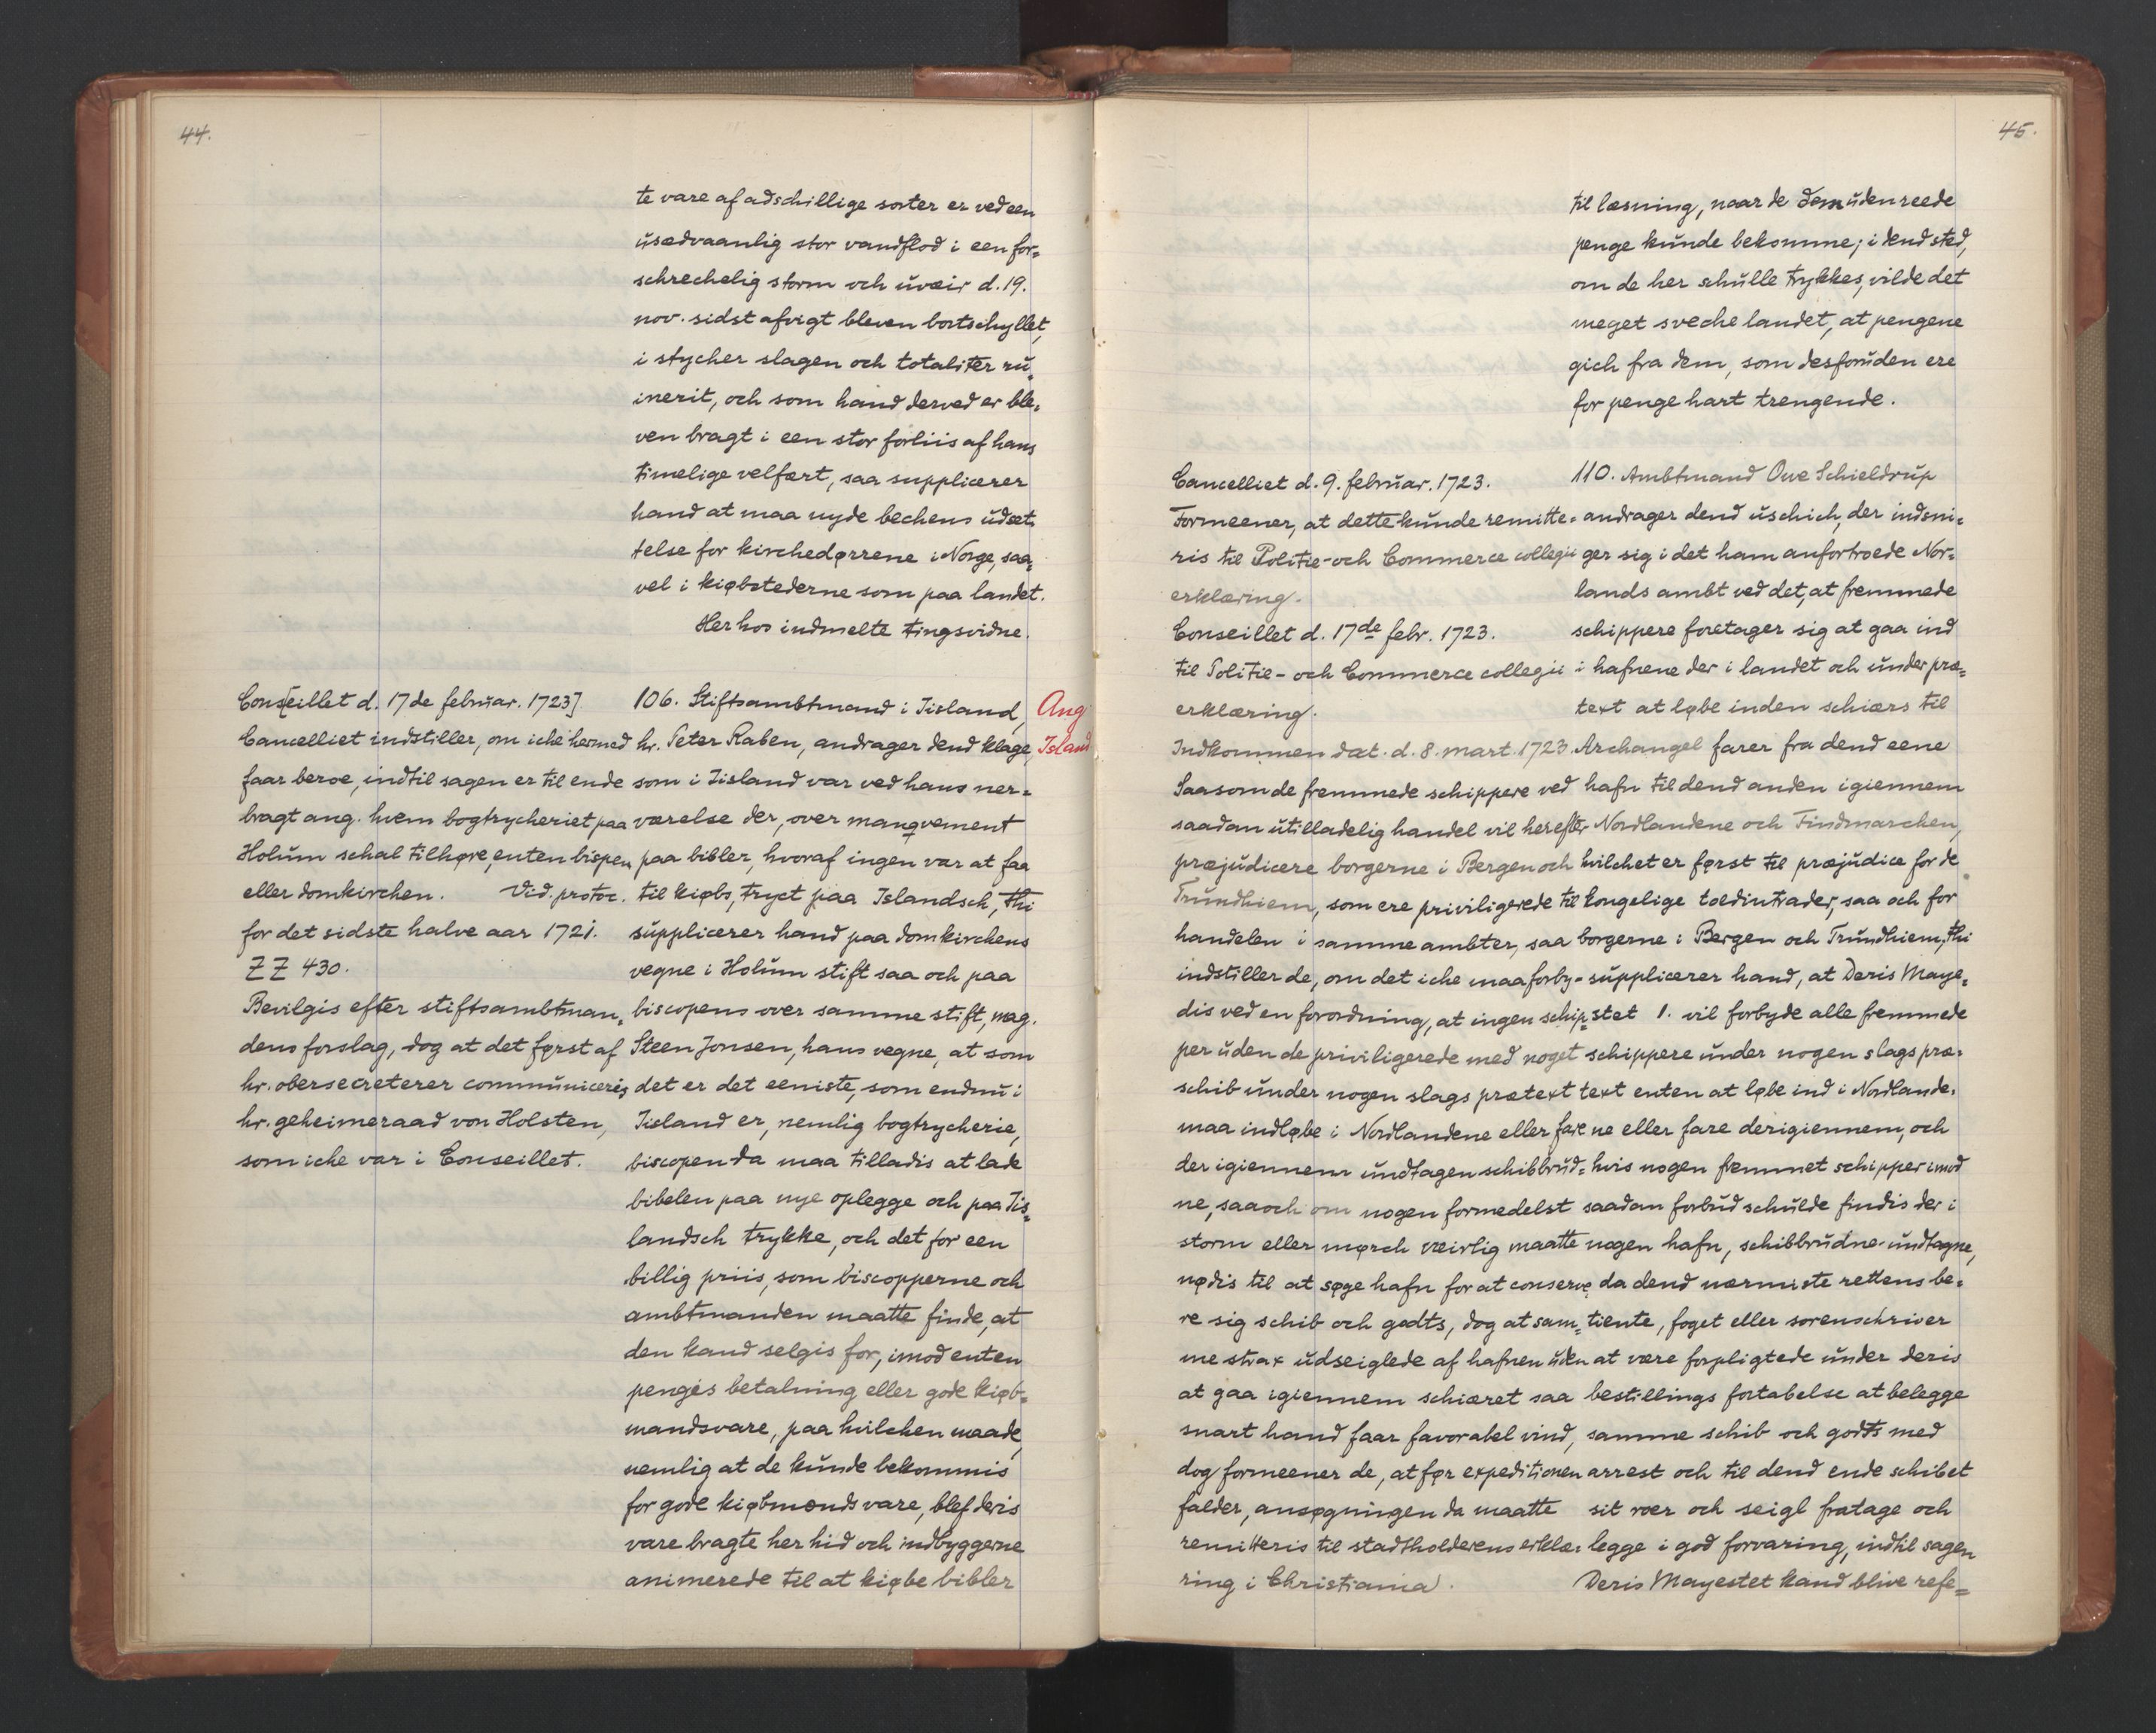 44.
te vare af adschillige sorter er ved een
usædvaanlig stor vandflod i een for=
schrechelig storm och uveir d. 19.
nov. sidst afvigt bleven bortschyllet,
i stycher slagen och totaliter ru=
inerit, och som hand derved er ble=
ven bragt i een stor forliis af hans
timelige velfært, saa supplicerer
hand at maa nyde bechens udset=
telse for kirchedørrene i Norge, saa=
vel i kiøbstederne som paa landet.
Her hos indmelte tingsvidne.
Cons[eillet d. 17de februar. 1723]
Cancelliet indstiller, om iche hermed
faar beroe, indtil sagen er til ende
bragt ang. hvem bogtrycheriet paa
Holum schal tilhøre, enten bispen
eller domkirchen. Vid. protoc.
for det sidste halve aar 1721.
ZZ 430.
Bevilgis efter stiftsambtman=
dens forslag, dog at det først af
hr. obersecreterer communiceris
hr. geheimeraad von Holsten,
som iche var i Conseillet.
106. Stiftsambtmand i Iisland,
hr. Peter Raben, andrager dend klage,
som i Iisland var ved hans ner=
værelse der, over manqvement
paa bibler, hvoraf ingen var at faa
til kiøbs, tryct paa Islandsch, thi
supplicerer hand paa domkirchens
vegne i Holum stift saa och paa
biscopens over samme stift, mag.
Steen Jonsen, hans vegne, at som
det er det eeniste, som endnu i
Iisland er, nemlig bogtrycherie,
biscopen da maa tilladis at lade
bibelen paa nye oplegge och paa Iis=
landsch trykke, och det for een
billig priis, som biscopperne och
ambtmanden maatte finde, at
den kand selgis for, imod enten
pengis betalning eller gode kiøb=
mandsvare, paa hvilchen maade,
nemlig at de kunde bekommis
for gode kiøbmends vare, blef deris
vare bragte her hid och indbyggerne
animerede til at kiøbe bibler
Ang
Island
45.
til læsning, naar de dem uden reede
penge kunde bekomme; i dend sted,
om de her schulle trykkes, vilde det
meget sveche landet, at pengene
gich fra dem, som desforuden ere
for penge hart trengende.
Cancelliet d. 9. februar. 1723.
Formeener, at dette kunde remitte=
ris til Politie- och Commerce collegii
erklæring.
Conseillet d. 17de febr. 1723.
til Politie- och Commerce collegii
erklæring.
Indkommen dat. d. 8. mart. 1723.
Saasom de fremmede schippere ved
saadan utilladelig handel vil herefter
præjudicere borgerne i Bergen och
Trundhiem, som ere priviligerede til
handelen i samme ambter, saa
indstiller de, om det iche maa forby=
dis ved en forordning, at ingen schip=
per uden de priviligerede med noget
schib under nogen slags prætext
maa indløbe i Nordlandene eller fare
der igiennem undtagen schibbrud=
ne, saa och om nogen formedelst
storm eller mørch veirlig maatte
nødis til at søge hafn for at conserve=
re sig schib och godts, dog at sam=
me strax udseiglede af hafnen uden
at gaa igiennem schiæret saa
snart hand faar favorabel vind,
dog formeener de, at før expeditionen
falder, ansøgningen da maatte
remitteris til stadtholderens erklæ=
ring i Christiania.
110. Ambtmand Ove Schieldrup
andrager dend uschich, der indsni=
ger sig i det ham anfortroede Nor=
lands ambt ved det, at fremmede
schippere foretager sig at gaa ind
i hafnene der i landet och under præ=
text at løbe inden schiærs til
Archangel farer fra dend eene
hafn til dend anden igiennem
Nordlandene och Findmarchen,
hvilchet er først til præjudice for de
kongelige toldintrader, saa och for
borgerne i Bergen och Trundhiem, thi
supplicerer hand, at Deris Maye=
stet 1. vil forbyde alle fremmede
schippere under nogen slags præ=
text enten at løbe ind i Nordlande=
ne eller fare derigiennem, och
hvis nogen fremmet schipper imod
saadan forbud schulde findis der i
nogen hafn, schibbrudne undtagne,
da dend nærmiste rettens be=
tiente, foget eller sorenschriver
at være forpligtede under deris
bestillings fortabelse at belegge
samme schib och godts med
arrest och til dend ende schibet
sit roer och seigl fratage och
legge i god forvaring, indtil sagen
Deris Mayestet kand blive refe=